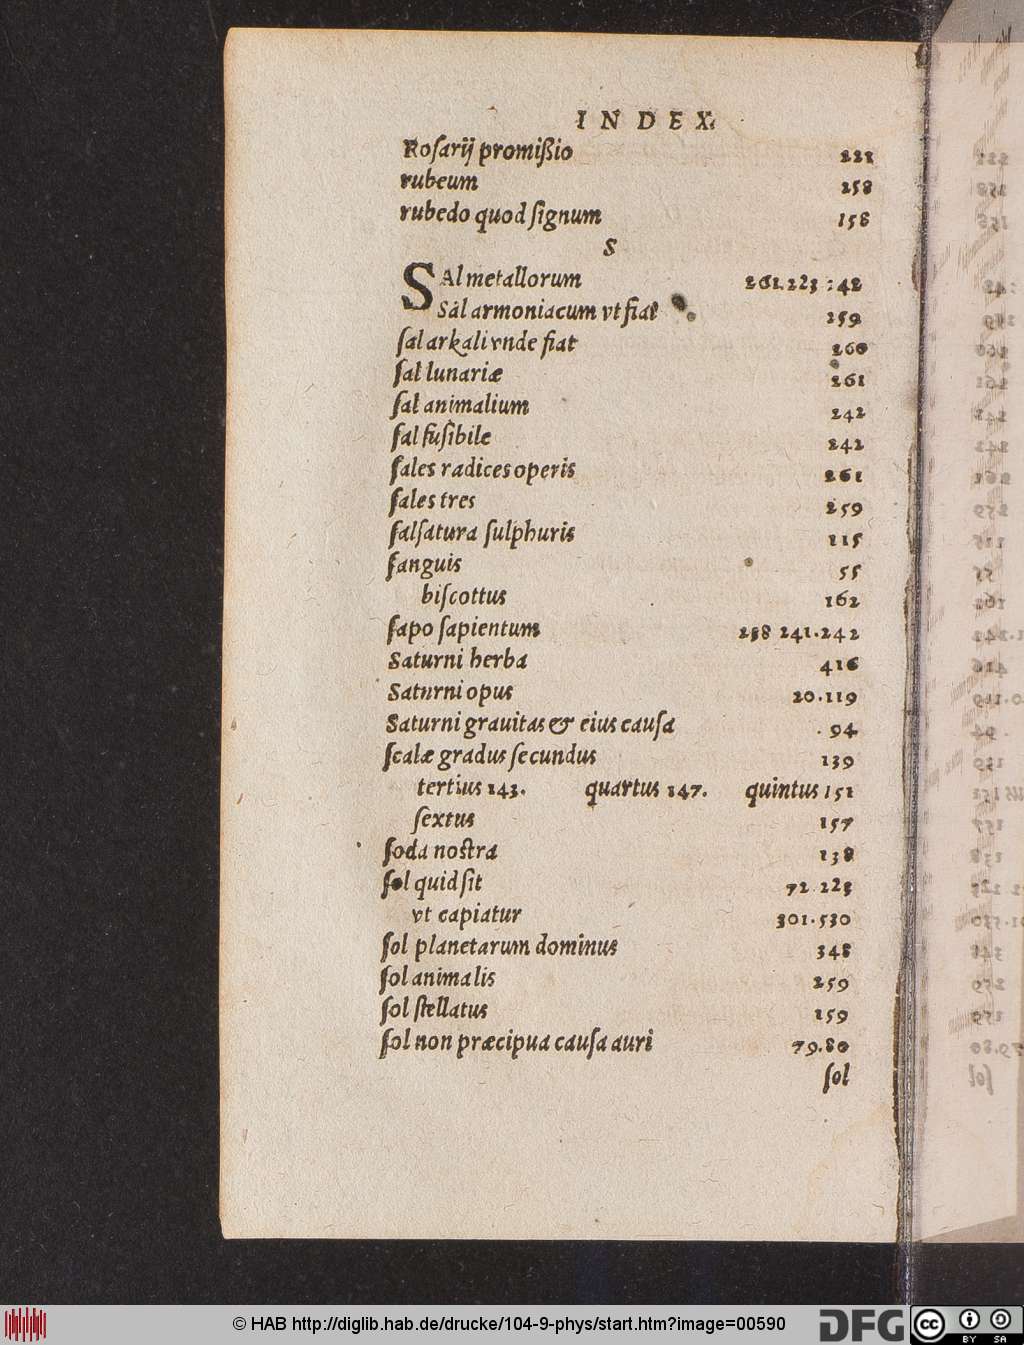 INDEX.
Roſarij promißio 221
rubeum 258
rubedo quod ſignum 158
S
SAl metallorum 261.223 :42
Sal armoniacum vt fiat 259
ſal arkali vnde fiat 260
ſal lunariæ 261
ſal animalium 242
ſal fuſibile 242
ſales radices operis 261
ſales tres 259
ſalſatura ſulphuris 115
ſanguis 55
biſcottus 162
ſapo ſapientum 238 241.242
Saturni herba 416
Saturni opus 20.119
Saturni grauitas & eius cauſa . 94
ſcalæ gradus ſecundus 139
tertius 143. quartus 147. quintus 151
ſextus 157
ſoda noſtra 138
ſol quid ſit 72 223
vt capiatur 301.530
ſol planetarum dominus 348
ſol animalis 259
ſol ſtellatus 159
ſol non præcipua cauſa auri 79.80
ſol
© HAB http://diglib.hab.de/drucke/104-9-phys/start.htm?image=00590
DFG
cc BY SA